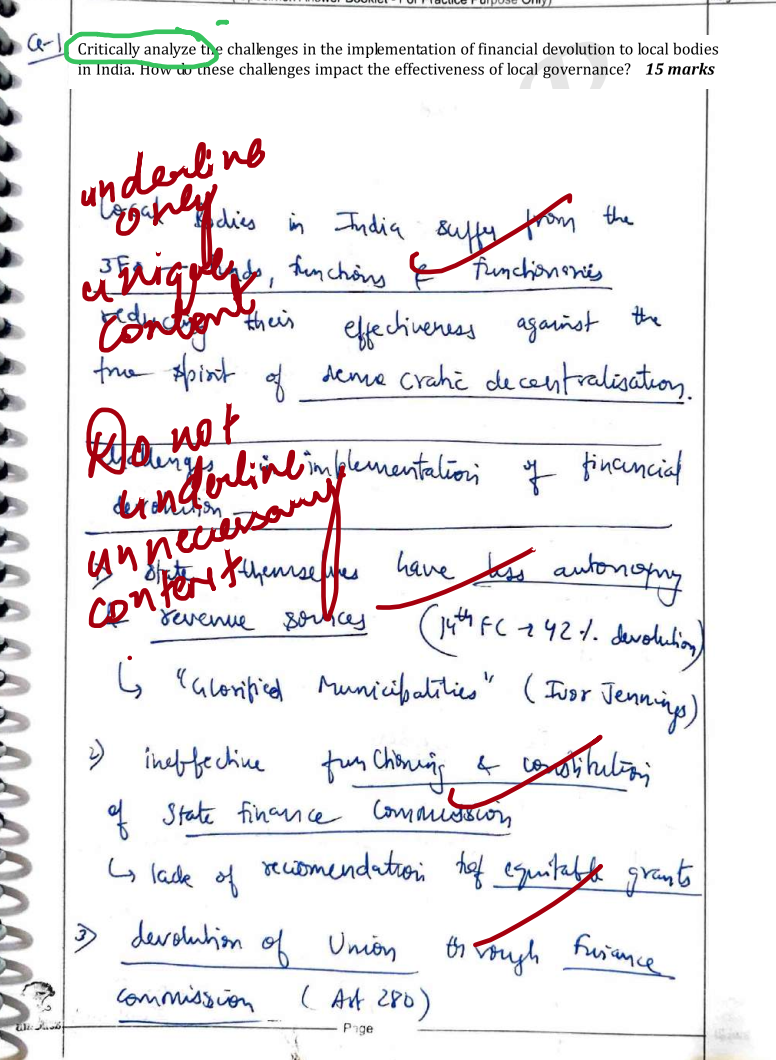 Specimen Answer Booklet - For Practice Purpose Only)
Q-1
Critically analyze the challenges in the implementation of financial devolution to local bodies
in India. How do these challenges impact the effectiveness of local governance? 15 marks
underline
only
unique
content
Local bodies in India suffer from the
3Fs funds, functions & functionaries
reducing their effectiveness against the
true spirit of democratic decentralisation.
Do not
underline
unnecessary
content
Challenges in implementation of financial
devolution
1) State themselves have less autonomy
& revenue sources (14th FC → 42 % devolution)
↳ "Glorified Municipalities" (Ivor Jennings)
2) ineffective functioning & constitution
of State finance Commission
↳ lack of reccomendation of equitable grants
3) devolution of Union through Finance
commission (Art 280)
Page